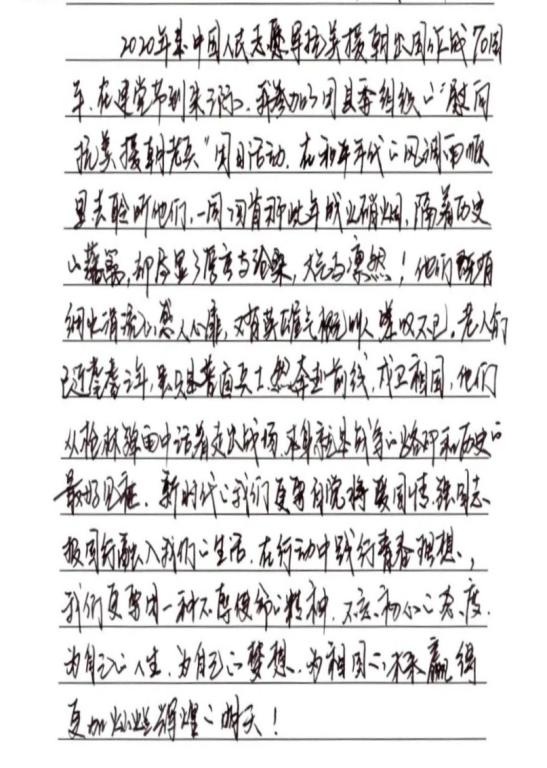 2020年是中国人民志愿军抗美援朝出国作战70周
年,在建党节到来之际,我参加了团县委组织的“慰问
抗美援朝老兵”周日活动.在和平年代的风调雨顺
里去聆听他们,一同回首那些年战火硝烟,隔着历史
的藩篱,却尽显了厚重与沧桑,大气与凛然!他们既有
细水潺流的感人心扉,又有英雄气概的叫人嗟叹不已.老人们
已近耄耋之年,虽只是普通兵士,然奔赴前线,戍卫祖国,他们
从枪林弹雨中活着走出战场,本身就是战争的烙印和历史的
最好见证.新时代的我们更要自觉将爱国情、强国志、
报国行融入我们的生活.在行动中践行青春理想,
我们更要用一种不辱使命的精神.不忘初心的态度.
为自己的人生,为自己的梦想.为祖国的未来赢得
更加灿烂辉煌的明天!